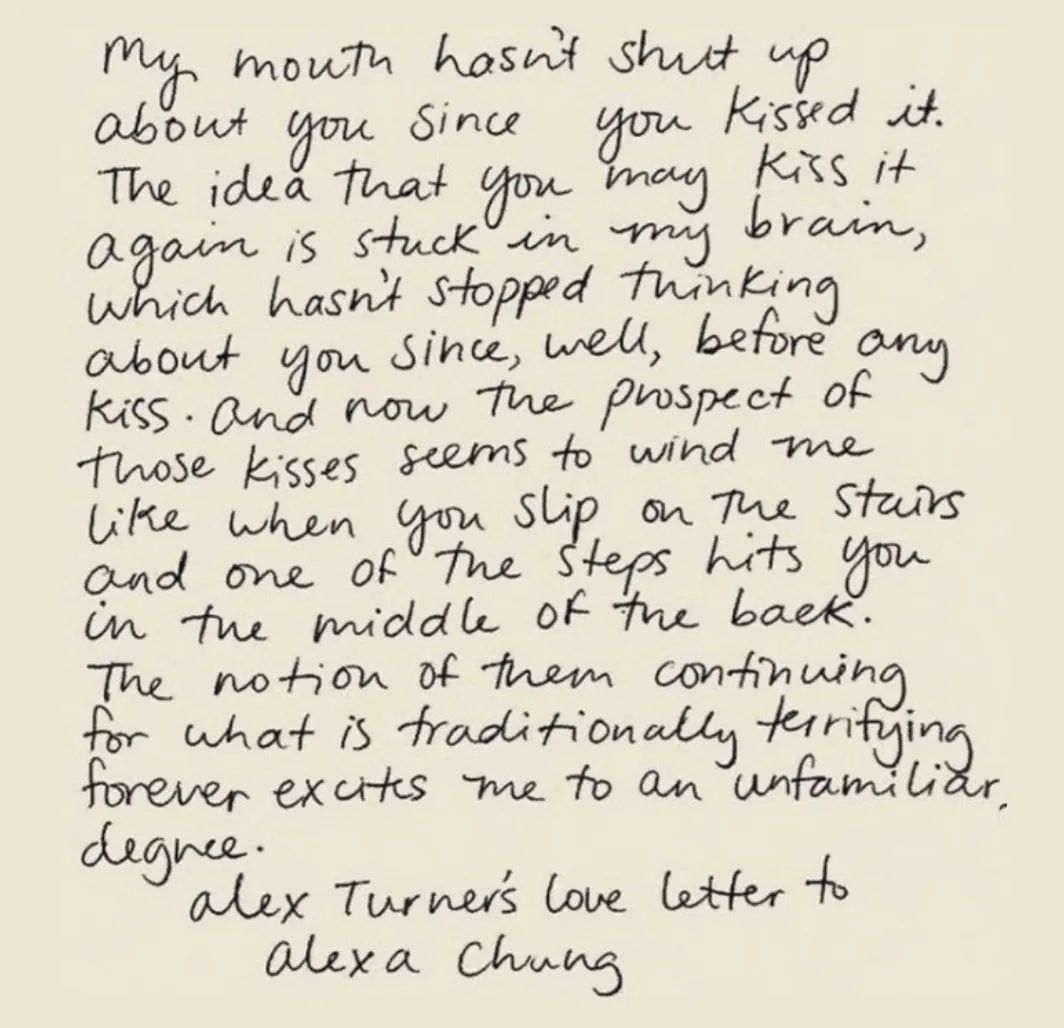 My mouth hasn't shut up
about you since you kissed it.
The idea that you may kiss it
again is stuck in my brain,
which hasn't stopped thinking
about you since, well, before any
kiss. And now the prospect of
those kisses seems to wind me
like when you slip on the stairs
and one of the steps hits you
in the middle of the back.
The notion of them continuing
for what is traditionally terrifying
forever excites me to an unfamiliar
degree.
Alex Turner's love letter to
Alexa Chung